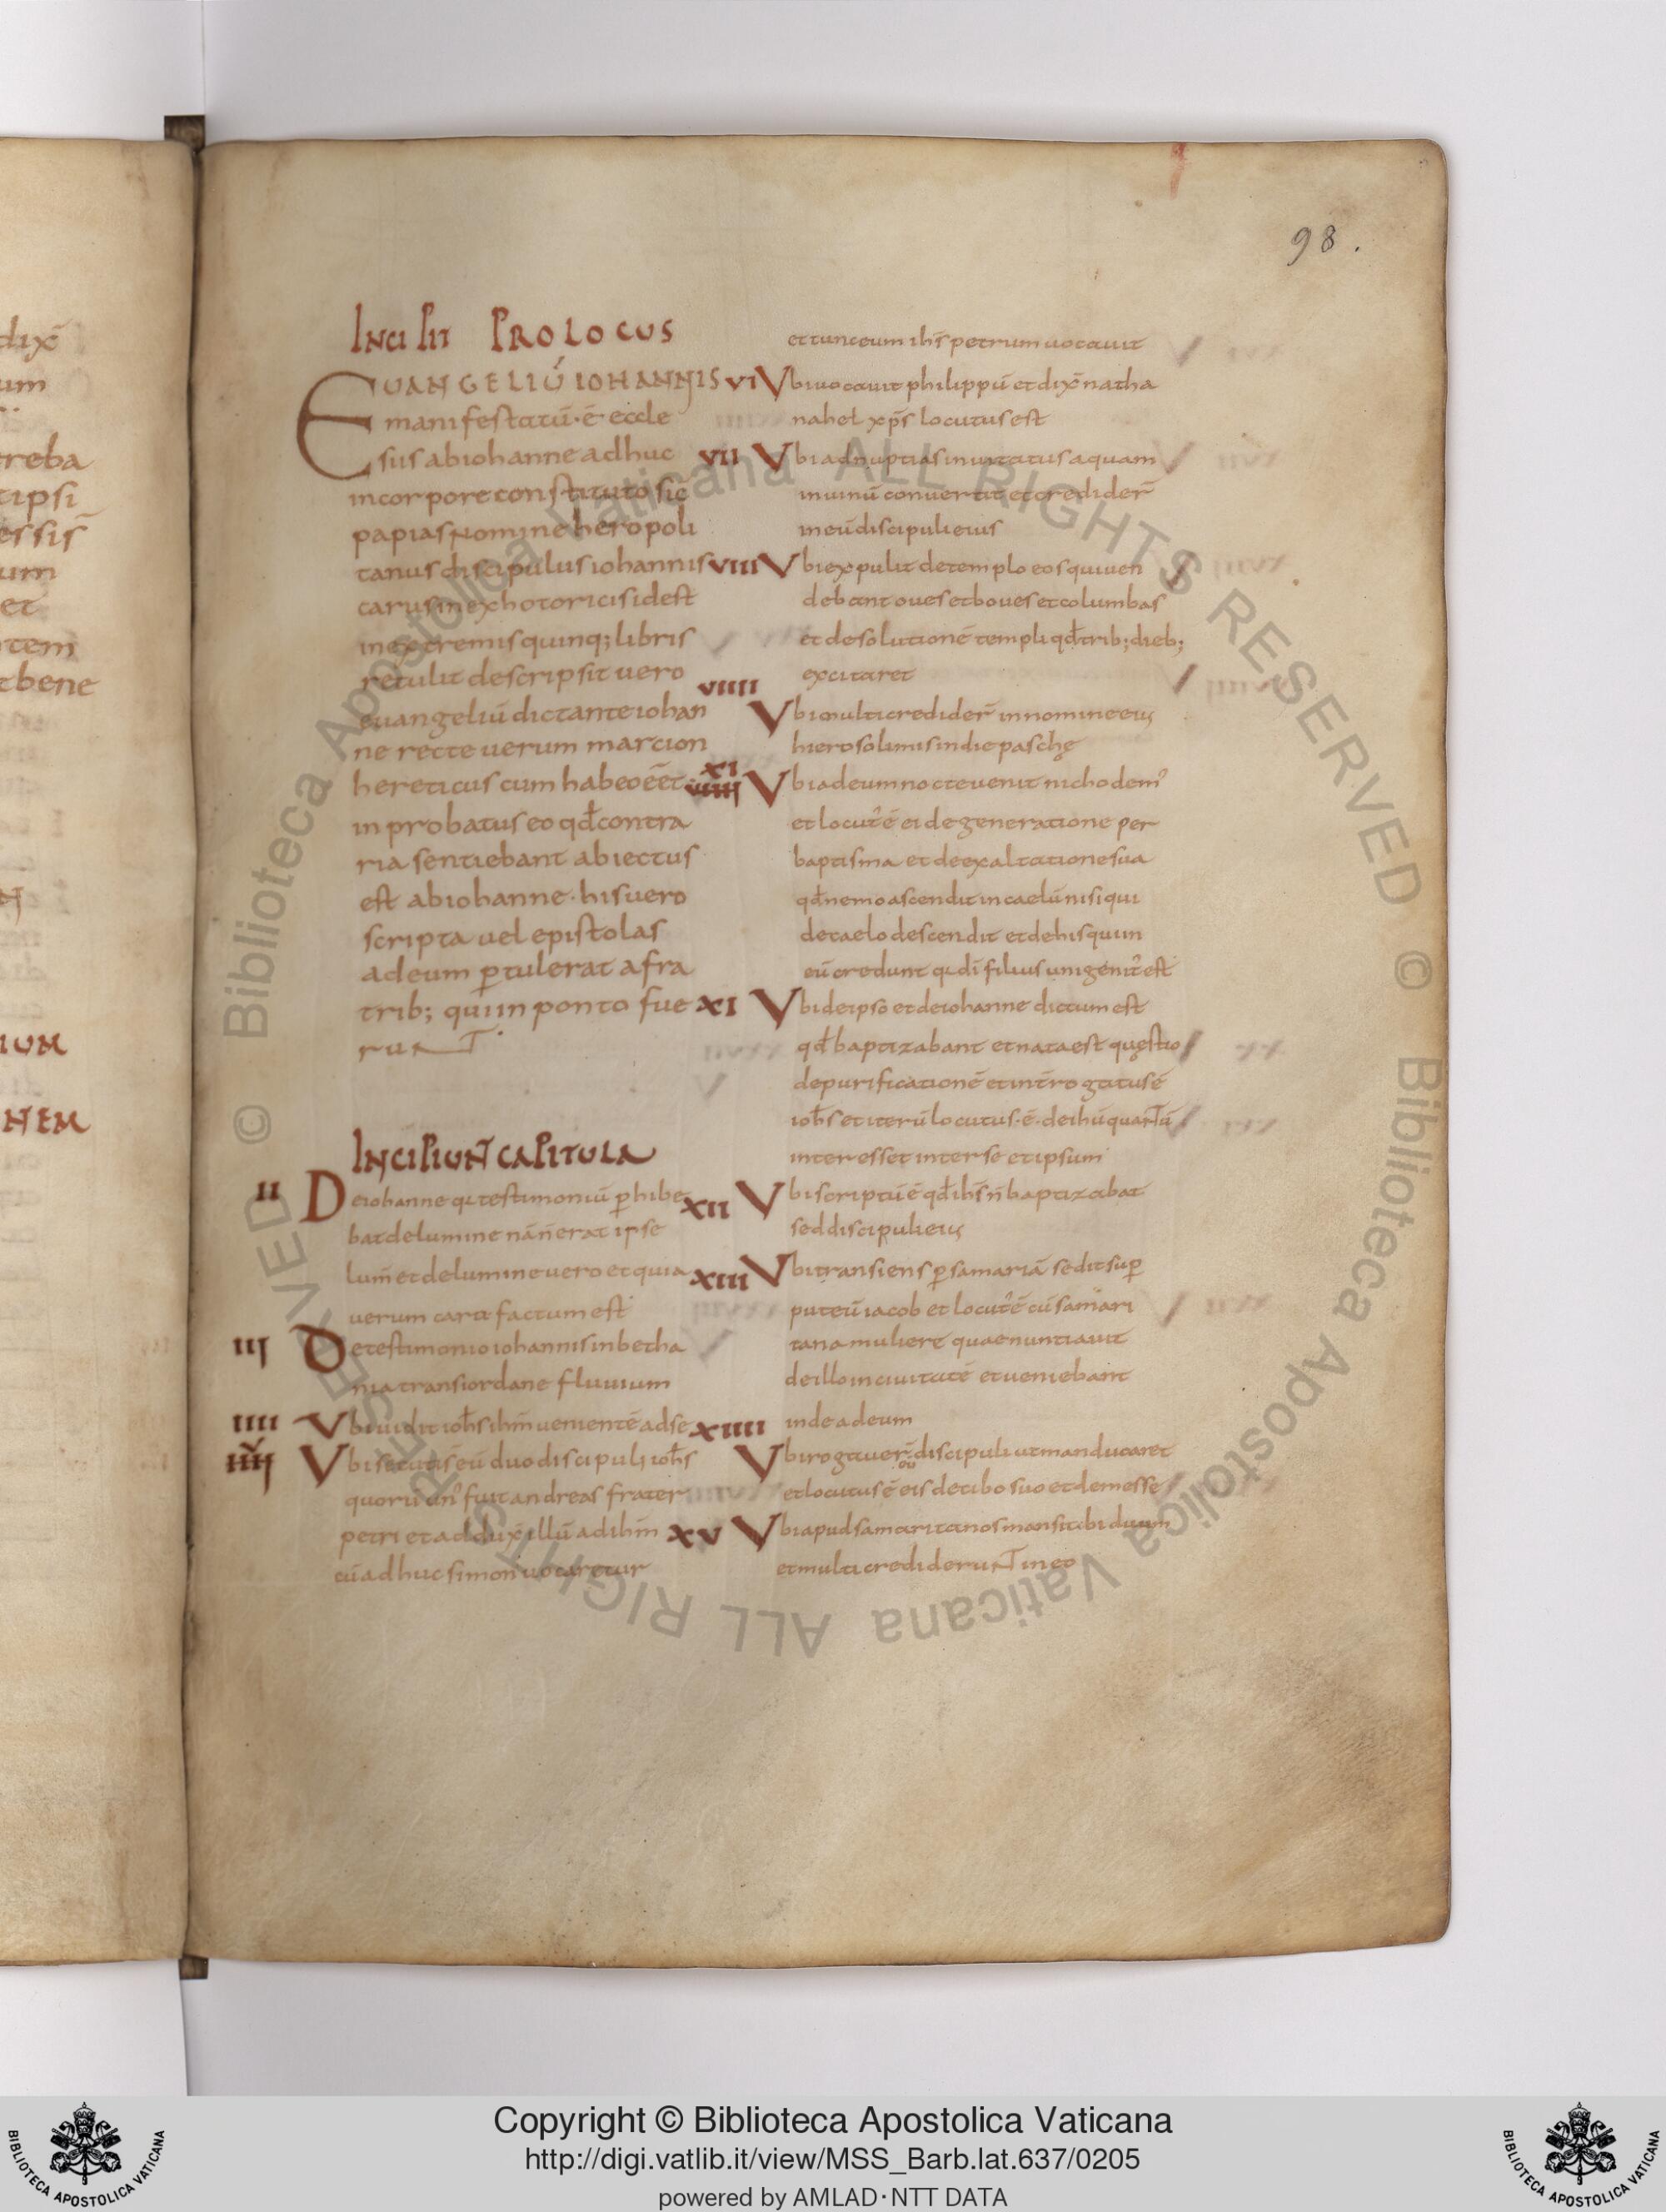 98.
INCIPIT PROLOCUS
EUANGELIŪ IOHANNIS
manifestatū·ē·eccle
siis abiohanne adhuc
incorpore constituto sic
papias nomine heropoli
tanus discipulus iohannis
carus inexhotoricis idest
inextremis quinq; libris
retulit descripsit uero
euangeliū dictante iohan
ne recte uerum marcion
hereticus cum habeo eēt
inprobatus eo qđ contra
ria sentiebant abiectus
est abiohanne·hisuero
scripta uel epistolas
adeum ptulerat afra
trib; qui in ponto fue
runt
INCIPIUNT CAPITULA
II Deiohanne qi testimoniū phibe
bat delumine nā ñ erat ipse
lum̄ et delumine uero et quia
uerum caro factum est
III De testimonio iohannis in betha
nia trans iordane fluuium
IIII Ubi uidit ioħs ihm̄ uenientē adse
V IIIII Ubi secuti sē eū duo discipuli ioħs
quorū un' fuit andreas frater
petri et adduxˉ illū ad ihm̄
cū adhuc simon uocaretur
et tunc eum ihs̄ petrum uocauit
VI Ubi uocauit philippū et dixˉ natha
nahel xp̄s locutus est
VII Ubi ad nuptias inuitatus aquam
inuinū conuertit et credider̄
in eū discipuli eius
VIII Ubi expulit detemplo eos qui uen
debant oues et boues et columbas
et de solutionē templi qđ trib; dieb;
excitaret
VIIII
Ubi multi credider̄ in nomine eius
hierosolimis in die paschę
XI
VIIII Ubi adeum nocte uenit nichodem'
et locut' ē ei de generatione per
baptisma et de exaltatione sua
qđ nemo ascendit in caelū nisi qui
decaelo descendit et dehis qui in
eū credunt qi dī filius unigenit' est
XI Ubi deipso et deiohanne dictum est
qđ baptizabant et nata est quęstio
depurificationē et int̄rogatus ē
ioħs et iterū locutus·ē·de ihū quantū
interesset inter se et ipsum
XII Ubi scriptū ē qđ ihs̄ n̄ baptizabat
sed discipuli eius
XIII Ubi transiens p samariā sedit sup
puteū iacob et locut' ē cū samari
tana muliere quae nuntiauit
deillo in ciuitatē et ueniebant
XIIII inde adeum
Ubi rogauer̄ discipuli ut manducaret
et locutus ē eis de cibo suo et de messe
XV Ubi apud samaritanos mansit ibi duum
et multi crediderunt in eo
dix̄
um
reba
tipsi
essis̄
um
et
tem
tbene
IUM
NEM
© Biblioteca Apostolica Vaticana ALL RIGHTS RESERVED © Biblioteca Apostolica Vaticana ALL RIGHTS RESERVED
Copyright © Biblioteca Apostolica Vaticana
http://digi.vatlib.it/view/MSS_Barb.lat.637/0205
powered by AMLAD·NTT DATA
BIBLIOTECA APOSTOLICA VATICANA
BIBLIOTECA APOSTOLICA VATICANA